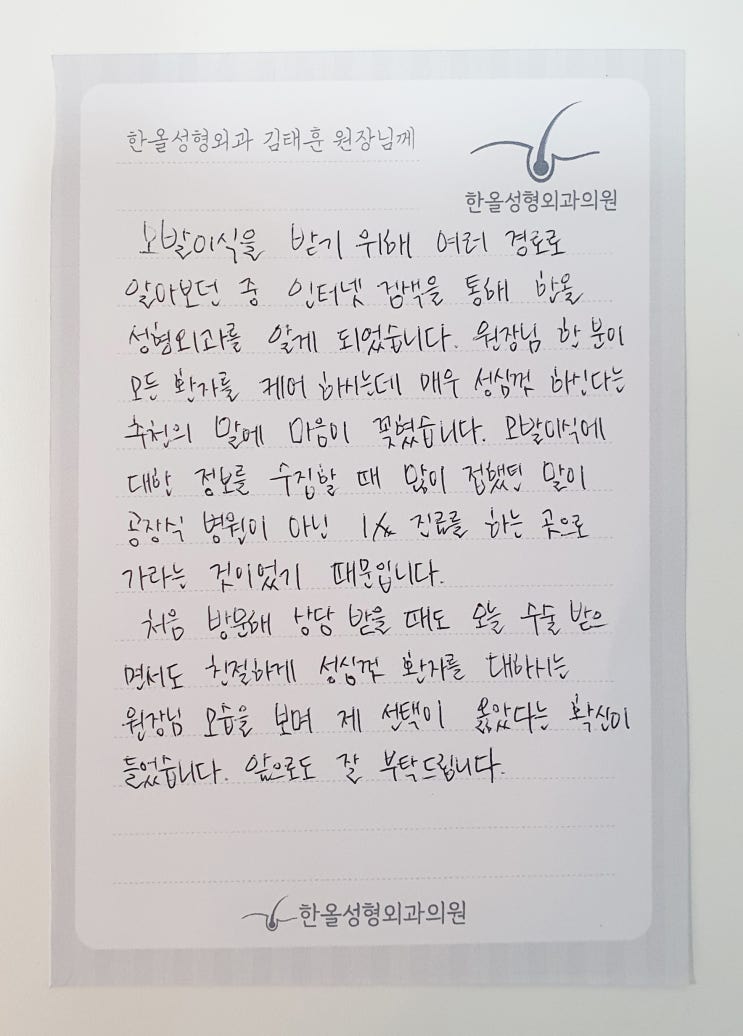 한올성형외과 김태훈 원장님께
한올성형외과의원
모발이식을 받기 위해 여러 경로로
알아보던 중 인터넷 검색을 통해 한올
성형외과를 알게 되었습니다. 원장님 한 분이
모든 환자를 케어 하시는데 매우 성심껏 하신다는
추천의 말에 마음이 꽂혔습니다. 모발이식에
대한 정보를 수집할 때 많이 접했던 말이
공장식 병원이 아닌 1:1 진료를 하는 곳으로
가라는 것이었기 때문입니다.
처음 방문해 상담 받을 때도 오늘 수술 받으
면서도 친절하게 성심껏 환자를 대하시는
원장님 모습을 보며 제 선택이 옳았다는 확신이
들었습니다. 앞으로도 잘 부탁드립니다.
한올성형외과의원